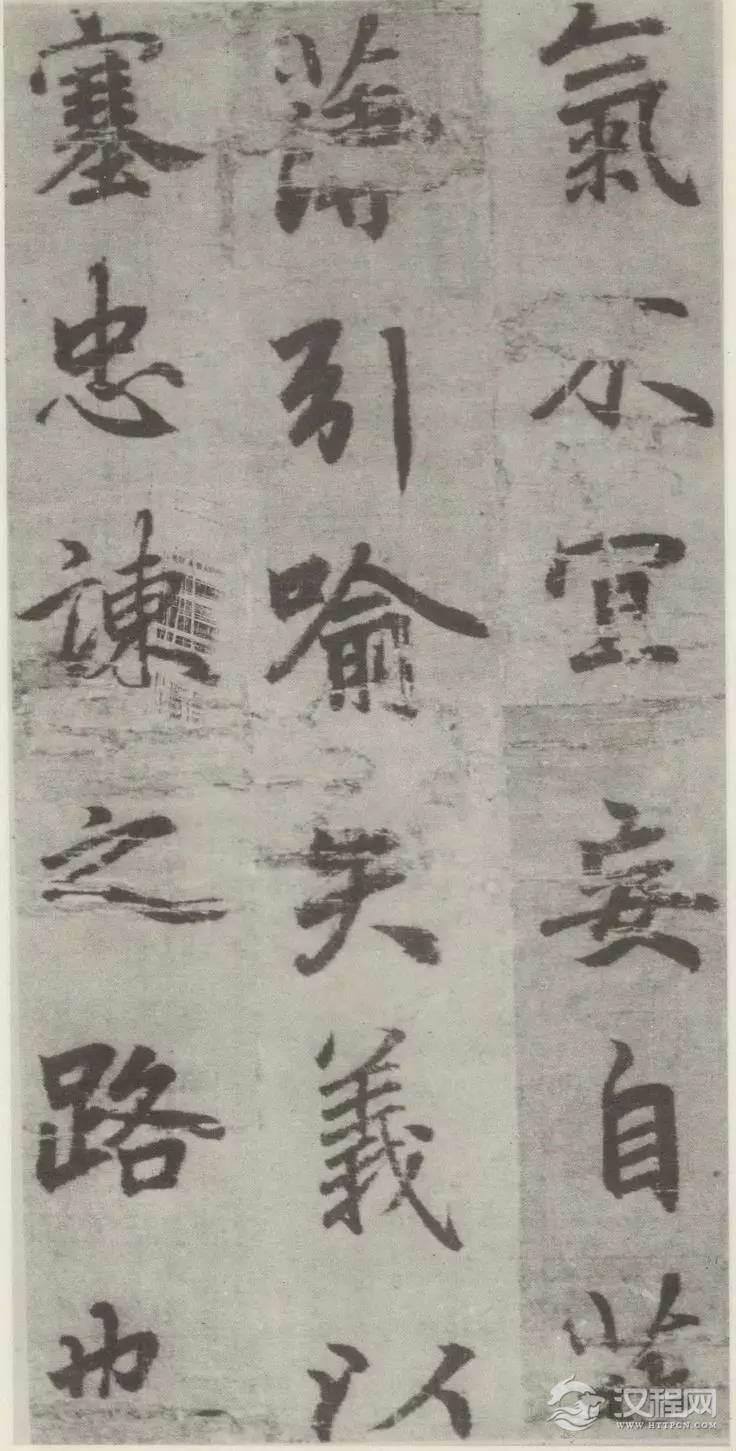 氣不宜妄自菲
薄引喻失義以
塞忠諫之路也
汉程网
WWW.HTTPCN.COM